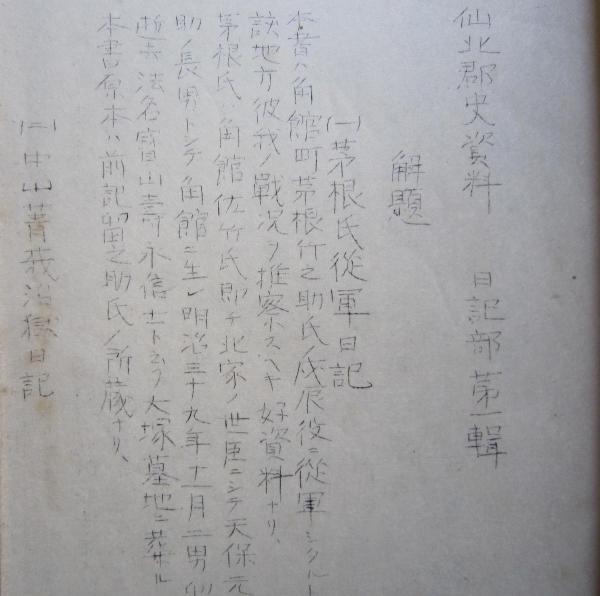 仙北郡史資料 日記部第一輯
解題
(一)茅根氏従軍日記
本書ハ角館町茅根竹之助氏ノ戊辰役ニ従軍シタルト
該地方彼我ノ戦況ヲ推察スヘキ好資料ナリ、
茅根氏ハ角館佐竹氏即チ北家ノ世臣ニシテ天保元
助ノ長男トシテ角館ニ生レ明治三十九年十一月二男
逝去法名寶山壽永信士ト云フ大塚墓地ニ葬ル
本書原本ハ前記留之助氏ノ所蔵ナリ、
(二)中山菁莪治獄日記